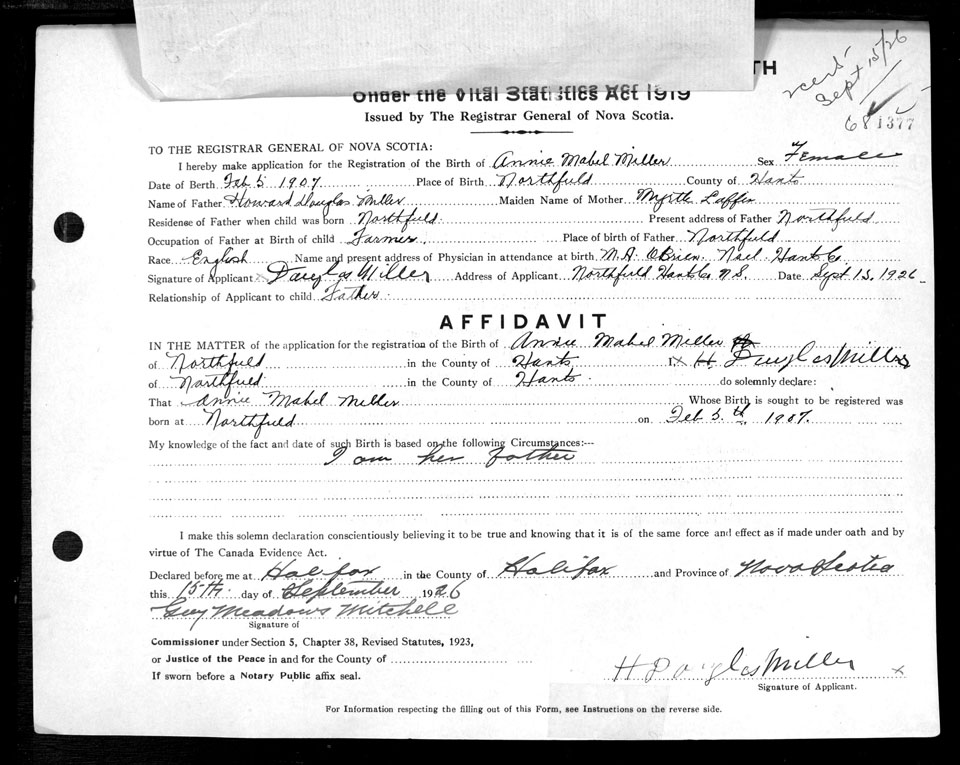 TH
Under the Vital Statistics Act 1919
Issued by The Registrar General of Nova Scotia.
Sept 15/26
68 1377
TO THE REGISTRAR GENERAL OF NOVA SCOTIA:
I hereby make application for the Registration of the Birth of Annie Mabel Miller Sex Female
Date of Berth Feb 5 1907 Place of Birth Northfield County of Hants
Name of Father Howard Douglas Miller Maiden Name of Mother Myrtle Laffin
Residense of Father when child was born Northfield Present address of Father Northfield
Occupation of Father at Birth of child Farmer. Place of birth of Father Northfield
Race English Name and present address of Physician in attendance at birth M.A. O'Brien, Noel Hants Co
Signature of Applicant x Douglas Miller Address of Applicant Northfield Hants Co N.S. Date Sept 15, 1926
Relationship of Applicant to child Father.
AFFIDAVIT
IN THE MATTER of the application for the registration of the Birth of Annie Mabel Miller
of Northfield in the County of Hants I, x H. Douglas Miller
of Northfield in the County of Hants do solemnly declare:
That Annie Mabel Miller Whose Birth is sought to be registered was
born at Northfield on Feb 5th 1907.
My knowledge of the fact and date of such Birth is based on the following Circumstances:--
I am her father
I make this solemn declaration conscientiously believing it to be true and knowing that it is of the same force and effect as if made under oath and by
virtue of The Canada Evidence Act.
Declared before me at Halifax in the County of Halifax and Province of Nova Scotia
this 15th day of September 1926
Guy Meadows Mitchell
Signature of
Commissioner under Section 5, Chapter 38, Revised Statutes, 1923,
or Justice of the Peace in and for the County of
If sworn before a Notary Public affix seal.
H Douglas Miller x
Signature of Applicant.
For Information respecting the filling out of this Form, see Instructions on the reverse side.